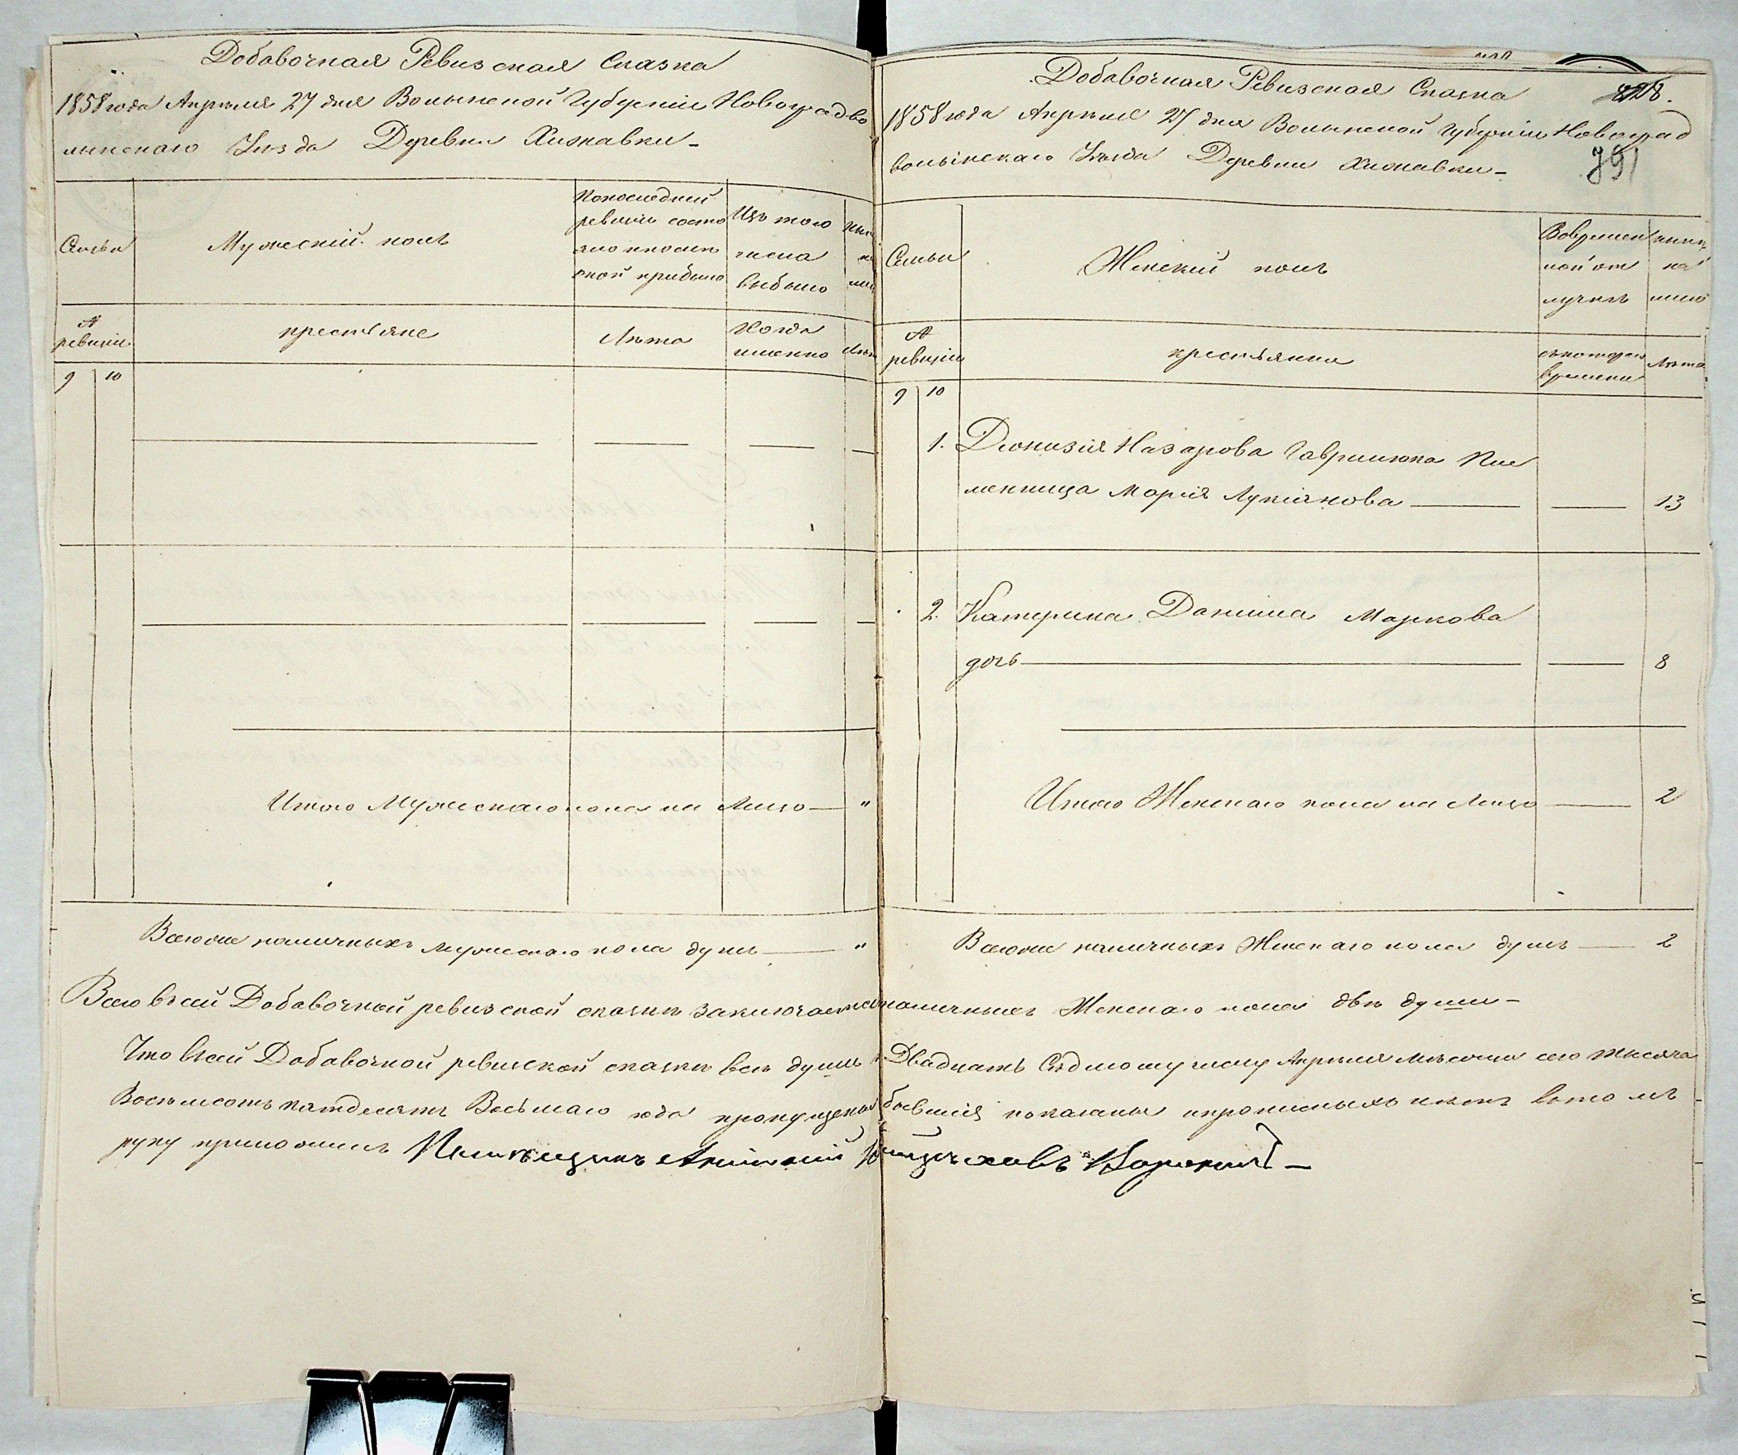 Добавочная Ревизская Сказка
1858 года Апреля 27 дня Волынской Губернии Новоградво
лынскаго Уѣзда Деревни Хижавки
Семьи
Мужескій полъ
Изъ того
числа
выбыло
№
ревизіи
крестьяне
Лѣта
Когда
именно
9 10
Итого Мужескаго пола на Лицо — "
Всего же наличныхъ мужескаго пола душъ — "
Добавочная Ревизская Сказка
1858 года Апреля 27 дня Волынской Губерніи Новоград
волынскаго Уѣзда Деревни Хижавки
791
Семьи
Женскій полъ
Вовремен
ной от
лучкѣ
№
ревизіи
крестьянка
времени
Лѣта
9 10
1. Дионизія Назарова Гаврилюка Пле
менница Марія Лукіянова — — 13
2. Катерина Данила Маркова
дочь — — 8
Итого Женскаго пола на Лицо — 2
Всего же наличныхъ Женскаго пола душъ — 2
Всего въ сей Добавочной ревизской сказкѣ заключается наличныхъ Женскаго пола двѣ души
Что в сей Добавочной ревизской сказкѣ всѣ души Двадцать Седмому числу Апреля мѣсяца сего тысяча
Восемьсотъ пятдесятъ Восьмаго года показаны
руку приложилъ